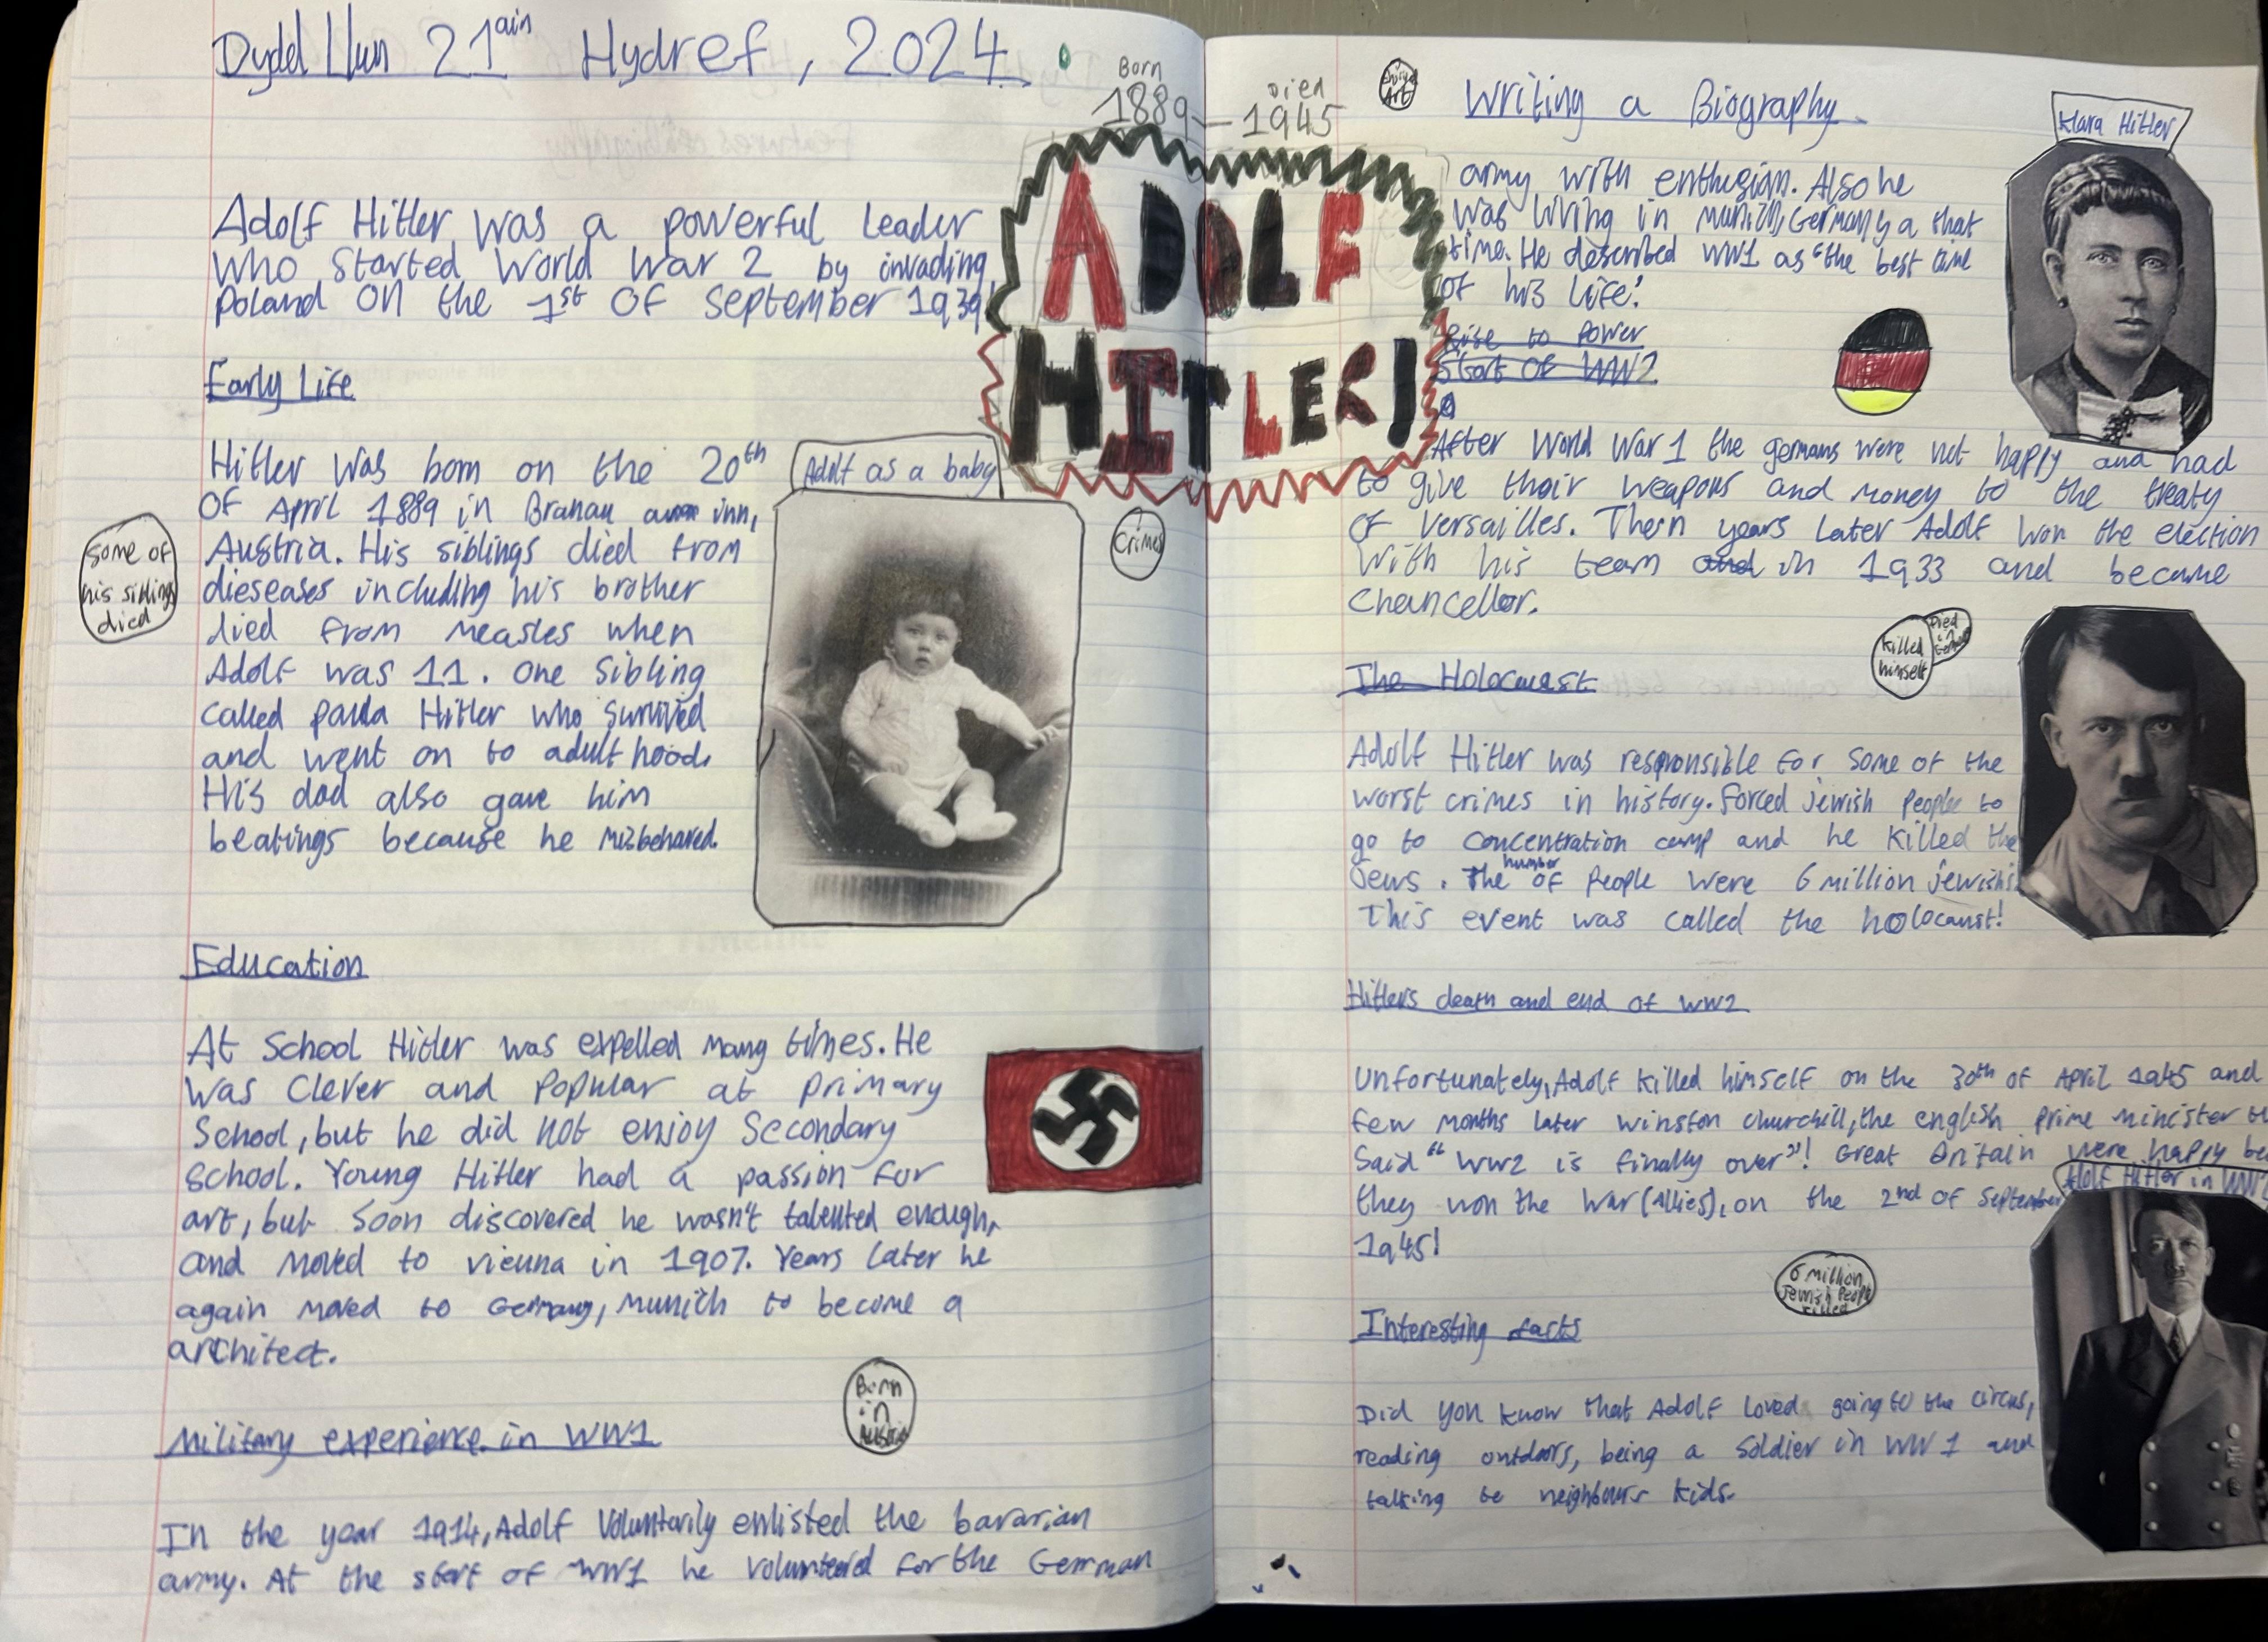 Dydd Llun 21ain Hydref, 2024.
Born
1889 — 1945
Died
ADOLF
HITLER!
Adolf Hitler was a powerful leader
who started World War 2 by invading
Poland on the 1st of September 1939!
Early Life
Hitler was born on the 20th
of April 1889 in Branau inn,
Austria. His siblings died from
dieseases including his brother
died from measles when
Adolf was 11. One sibling
called Paula Hitler who survived
and went on to adulthood.
His dad also gave him
beatings because he misbehaved.
some of
his siblings
died
Adolf as a baby
Crimes
Education
At School Hitler was expelled many times. He
was clever and popular at primary
School, but he did not enjoy Secondary
school. Young Hitler had a passion for
art, but soon discovered he wasn't talented enough,
and moved to vienna in 1907. Years later he
again moved to Germany, Munich to become a
architect.
Born
in
Austria
Military experience in WW1
In the year 1914, Adolf Voluntarily enlisted the bavarian
army. At the start of WW1 he volunteered for the German
Enjoyed
Art
Writing a Biography.
Klara Hitler
army with enthusian. Also he
was living in munich, Germany a that
time. He described WW1 as "the best time
of his life."
Rise to power
Start of WW2
After World War 1 the germans were not happy and had
to give their weapons and money to the treaty
of Versailles. Then years later Adolf won the election
with his team and in 1933 and became
Chancellor.
killed
himself
Died
in
The Holocaust
Adolf Hitler was responsible for some of the
worst crimes in history. Forced jewish people to
go to concentration camp and he killed the
Jews. The number of people were 6 million jewish's.
This event was called the holocaust!
Hitlers death and end of WW2
Unfortunately, Adolf killed himself on the 30th of April 1945 and
few months later winston churchill, the english prime minister
said "WW2 is finally over"! Great Britain were happy
they won the war (Allies), on the 2nd of September
1945!
Adolf Hitler in WW2
6 million
Jewish People
killed
Interesting facts
Did you know that Adolf loved going to the circus,
reading outdoors, being a soldier in WW1 and
talking to neighbours kids.